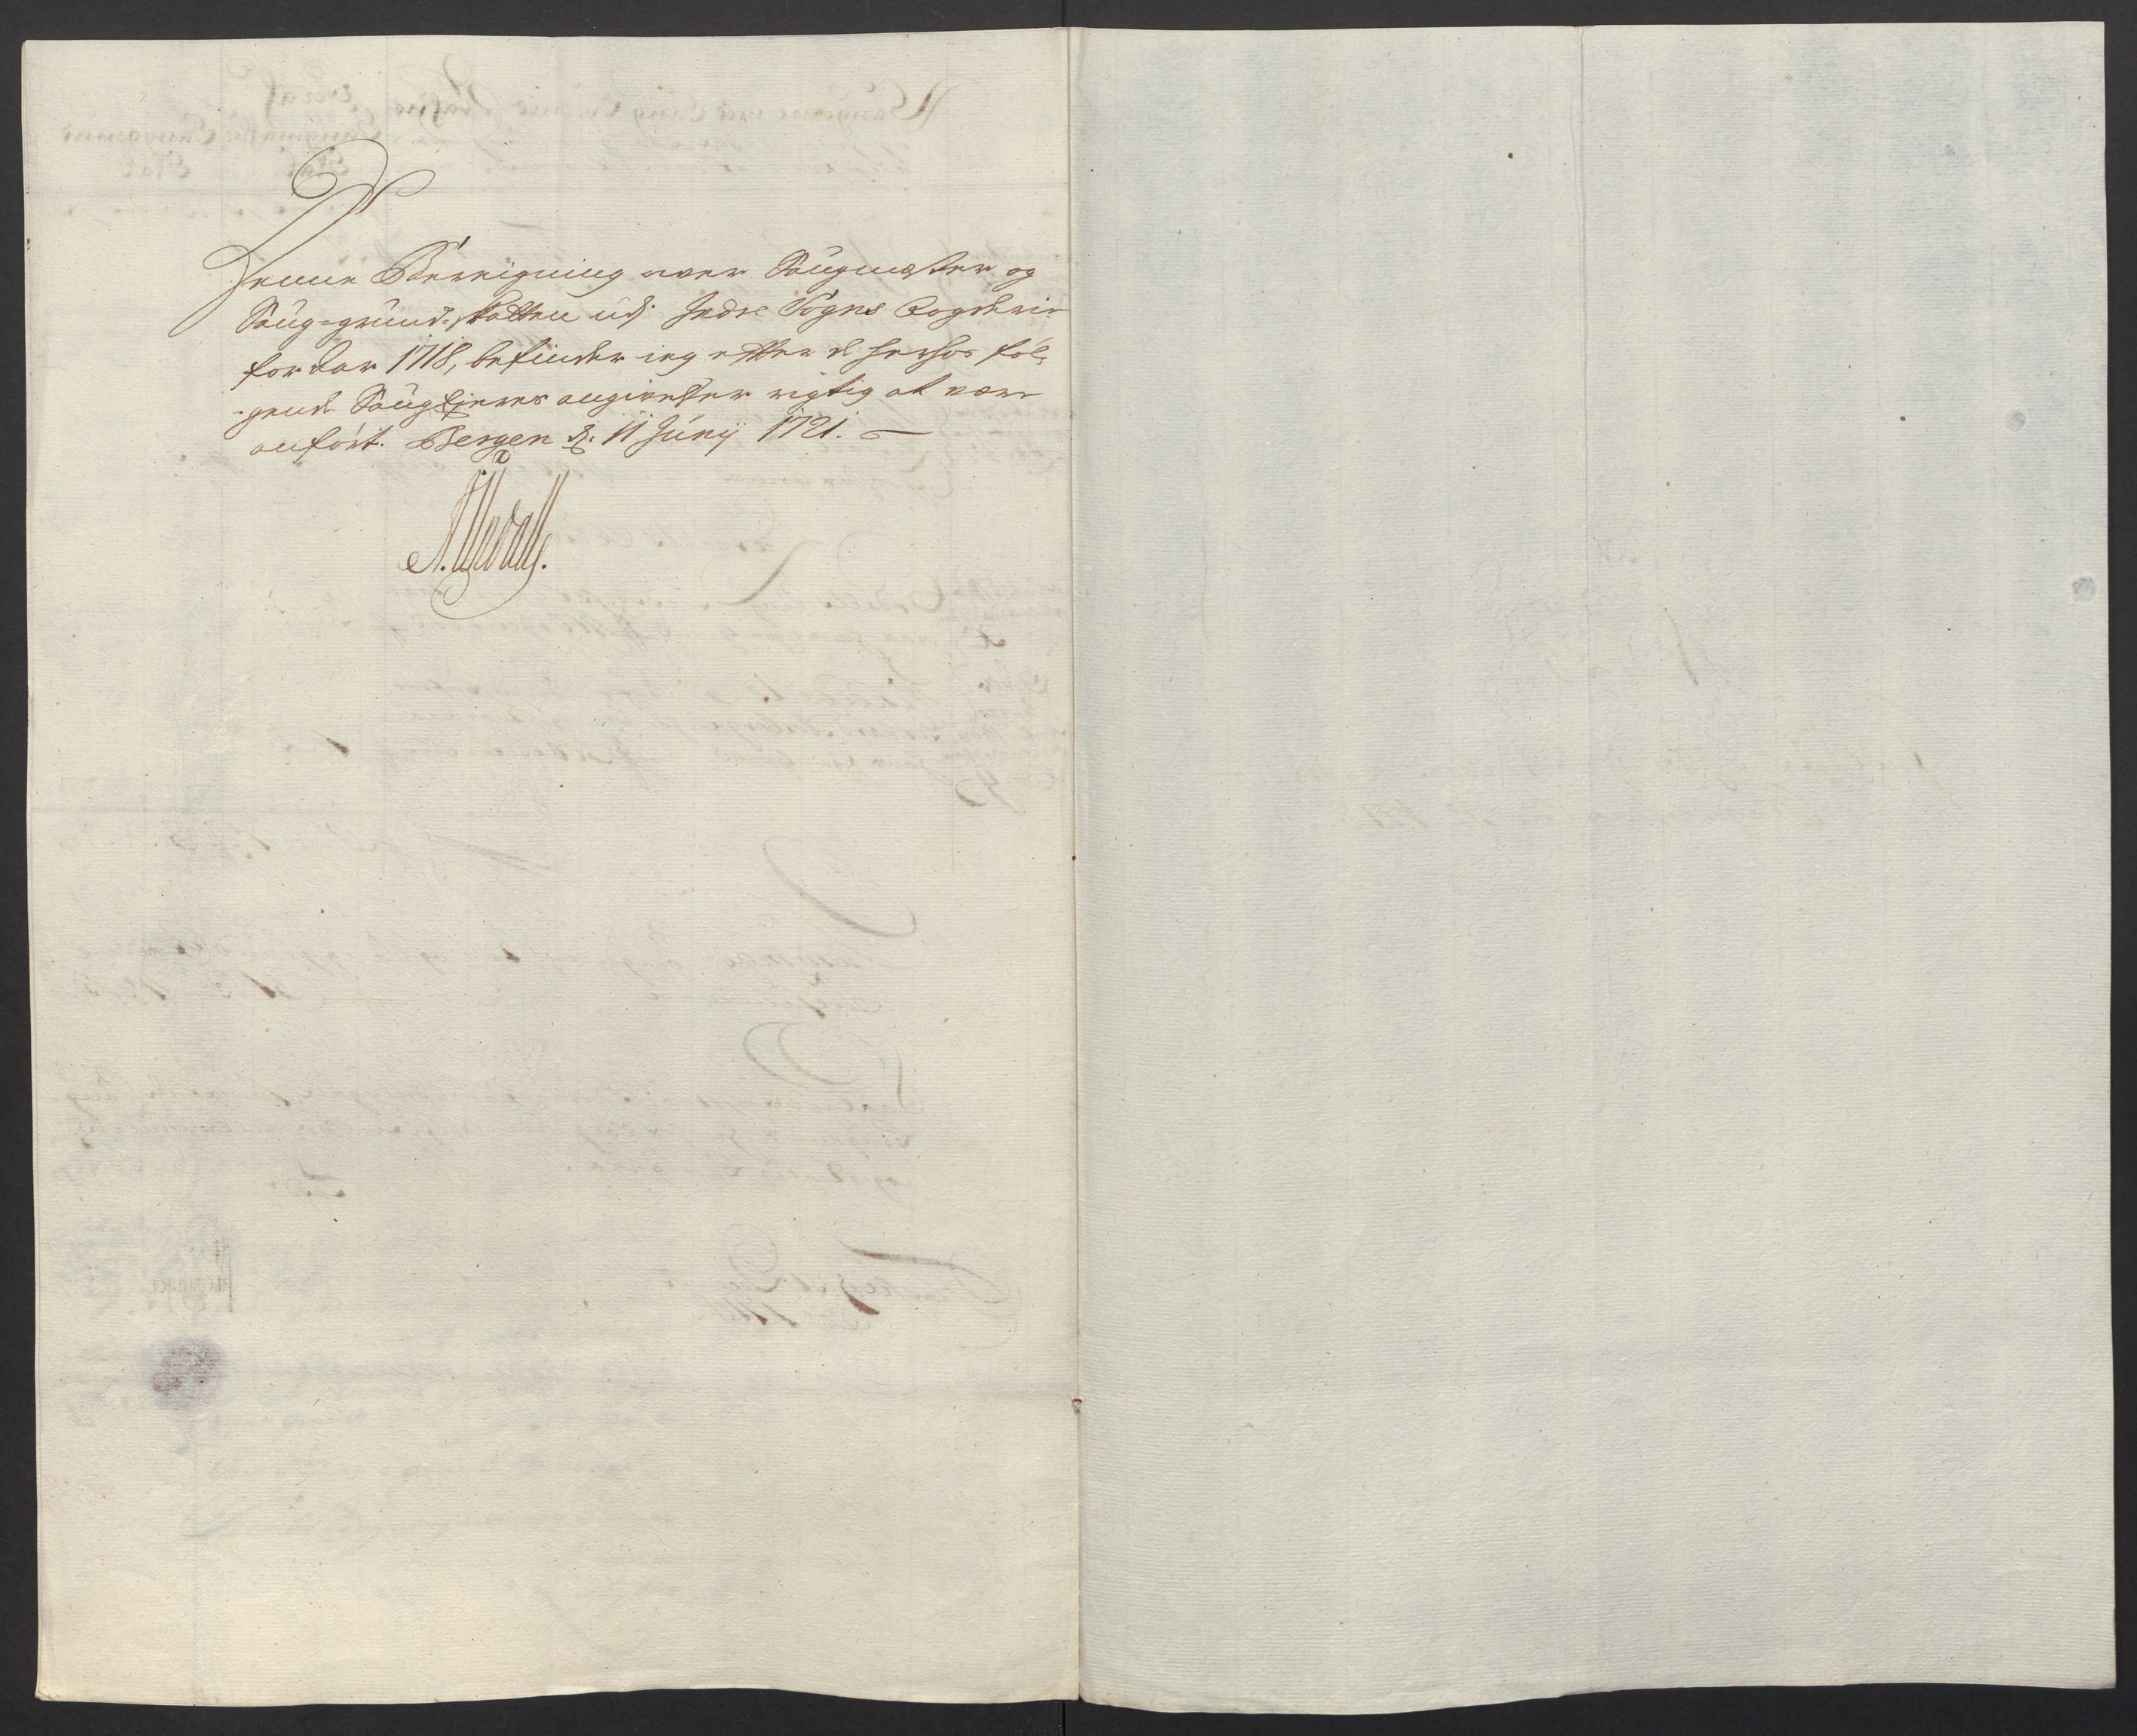 Denne Bereigning over Saugmester og
Saug-grund-skatten udj Indre Sogns Fogderie
for Aar 1718, befinder ieg efter de herhos føl-
-gende Saugeyeres angivelser rigtig at være
anført. Bergen d: 11 Junij 1721.